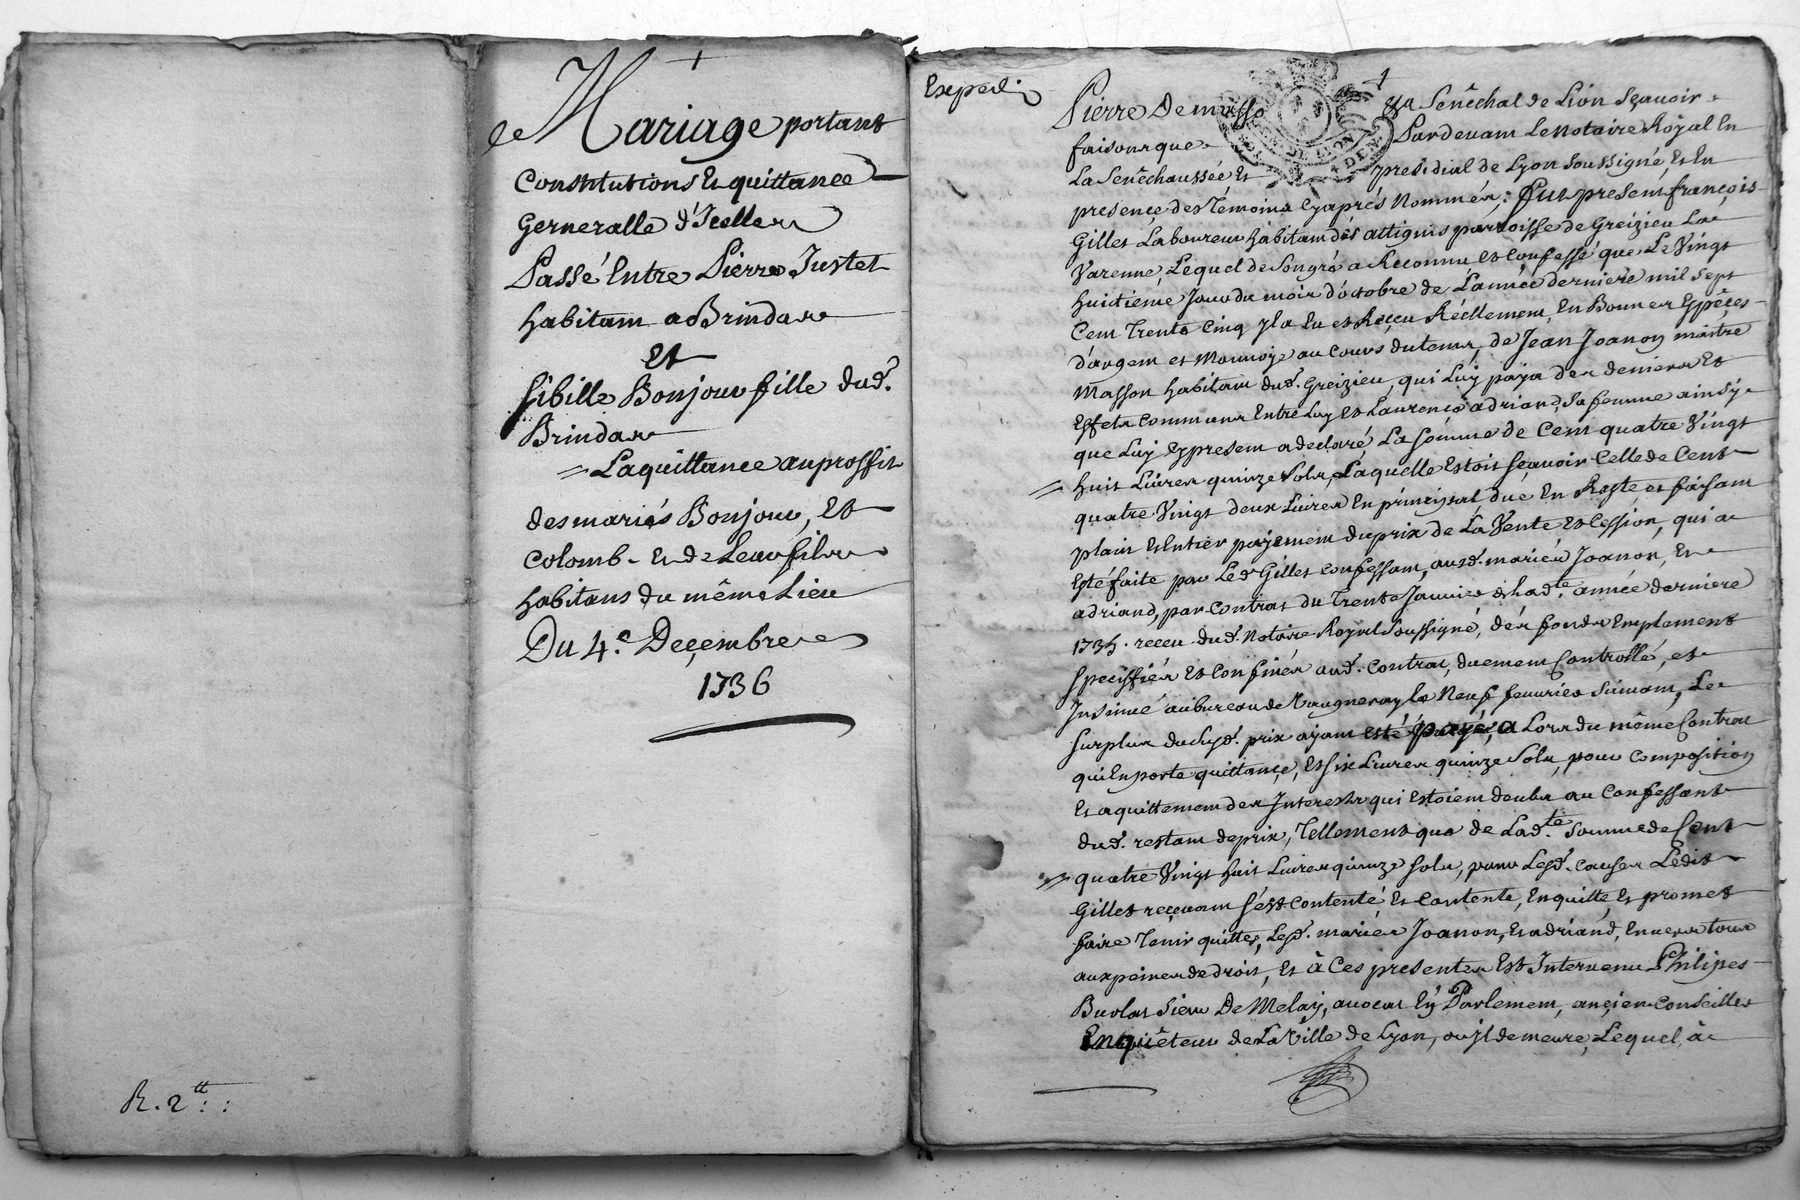 Mariage portant
Constitutions Et quittance
Gerneralle d'Icelles
Passé Entre Pierre Justet
habitant a Brindas
Et
Sibille Bonjour fille dud.
Brindas
= La quittance au proffit
des mariés Bonjour, Et
Colomb. Et de Leur fils
habitans du même Lieu
Du 4.e Decembre
1736
R. 2tt : :
Expedié
Pierre De masso Senêchal de Lion Sçavoir
faisons que Pardevant Le Notaire Royal En
La Senêchaussée Et presidial de Lyon Soussigné, Et En
presence des Témoins Cyaprés Nommés; fut present françois
Gillet Laboureur habitant des attignis parroisse de Greizieu La
Varenne, Lequel de Son gré a Reconnu Et Confessé que Le Vingt
huictiéme Jour du mois d'octobre de L'année derniere mil Sept
Cent Trente Cinq Il a Eu et Reçeu Réellement, En Bonnes Espéces
d'argent et Monnoye au Cours du tems, de Jean Joanon maitre
Masson habitant dud. Greizieu, qui Luy paya des deniers Et
Effets Communs Entre Luy Et Laurence adriand, Sa femme ainsy
que Luy Cypresent a declaré La Somme de Cent quatre Vingt
= huit Livres quinze Sols Laquelle Estoit Sçavoir Celle de Cent
quatre Vingt deux Livres En principal dué En Reste et faisant
plain Et Entier payement du prix de La Vente Et Cession, qui a
Esté faite par Led. Gillet Confessant, ausd. mariés Joanon, Et
adriand, par Contrat du Trente Janvier de lad.te année derniere
1735. receu dud. Notaire Royal Soussigné, dés fonds Emplement
Speciffiés Et Confinés aud. Contrat, duement Controllé, et
Insinué au bureau de Vaugneray le Neuf fevrier Suivant, Le
Surplus dudyd. prix ayant esté payé, a Lors du même Contrat
qui En porte quittance, Et Six Livres quinze Sols, pour Composition
Et aquittement des Interests qui Estoient deubs au Confessant
dud. restant de prix, Tellement que de Lad.te Somme de Cent
= quatre Vingt huit Livres quinze Sols, pour Lesd. Causes Ledit
Gillet reçevant S'est Contenté Et Contente, En quitte Et promet
faire Tenir quittes, Lesd. mariés Joanon, Et adriand, Envers tous
aux peines de droit, Et à Ces presentes Est Intervenu Philipes
Burlat Sieur De Melay, avocat En Parlement, ançien Conseiller
Enquêteur de La Ville de Lyon, ou Il demeure, Lequel à